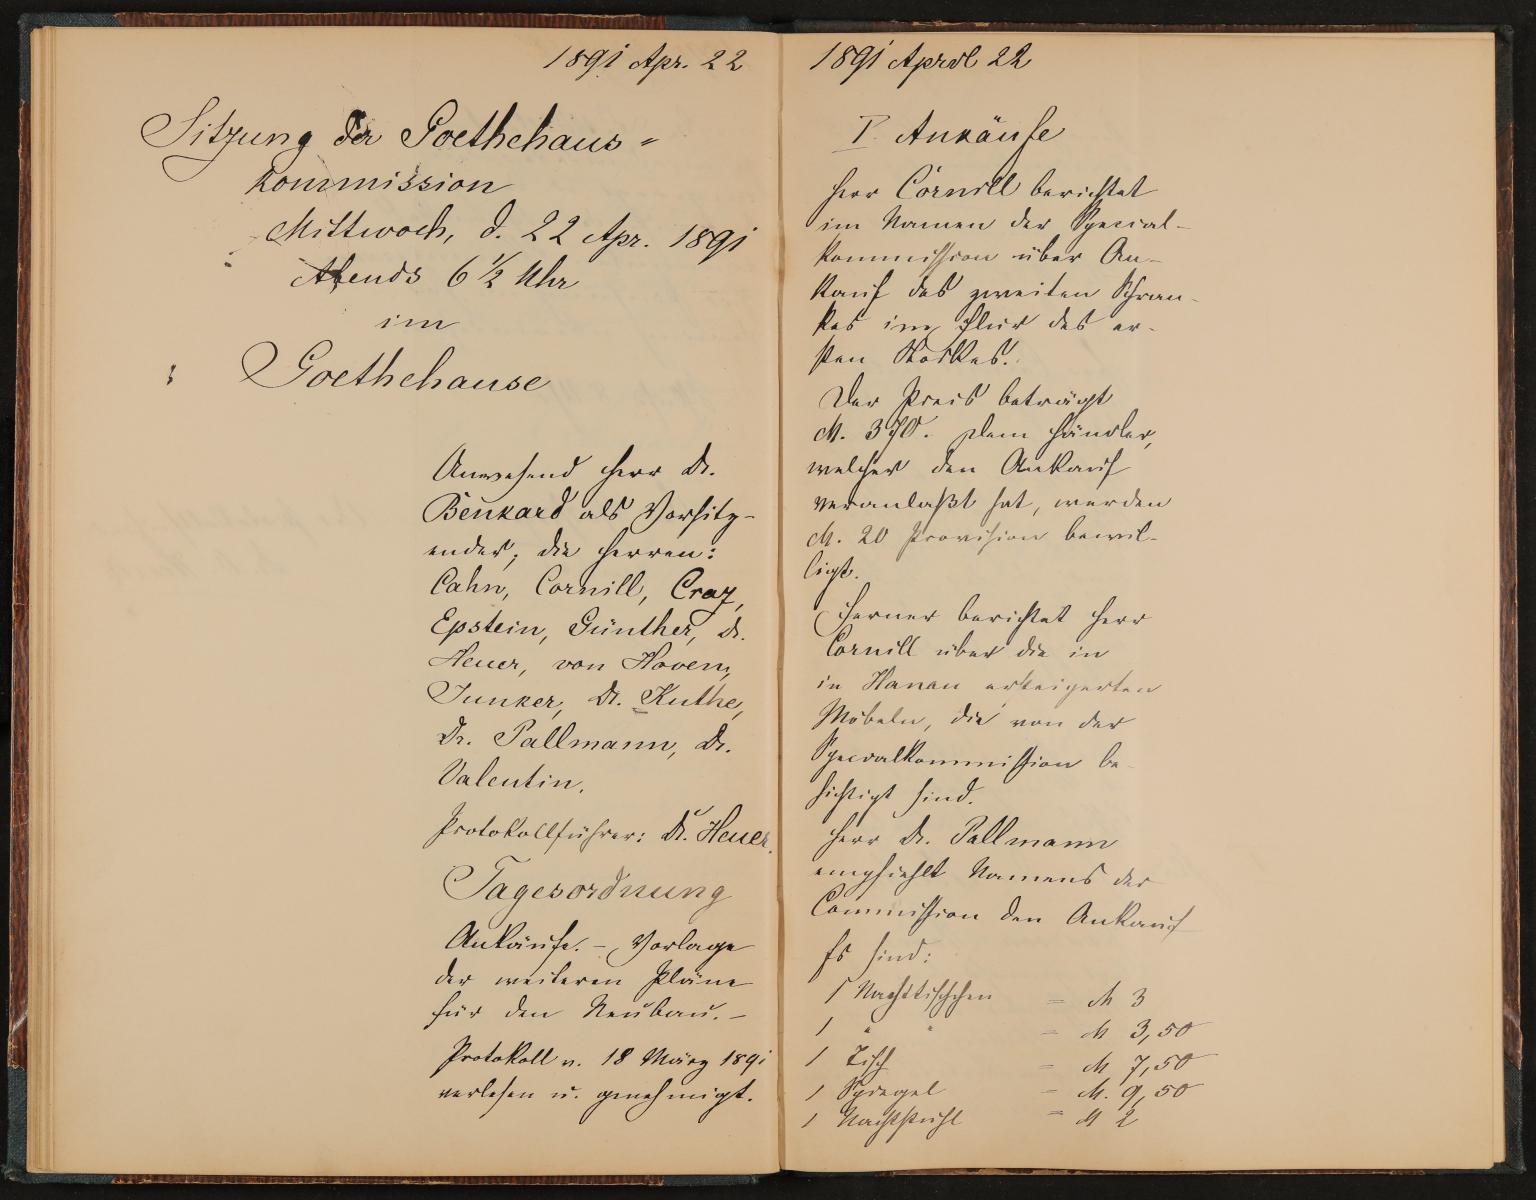 1891 Apr. 22
Sitzung der Goethehaus-
kommission
Mittwoch, d. 22 Apr. 1891
Abends 6 1/2 Uhr
im
Goethehause
Anwesend Herr Dr.
Benkard als Vorsitz-
ender, die Herren:
Cahn, Cornill, Craz,
Epstein, Günther, Dr.
Heuer, von Hoven,
Junker, Dr. Kuthe,
Dr. Pallmann, Dr.
Valentin.
Protokollführer: Dr. Heuer.
Tagesordnung
Ankäufe. – Vorlage
der weiteren Pläne
für den Neubau. –
Protokoll v. 18 März 1891
verlesen u. genehmigt.
1891 April 22
I. Ankäufe
Herr Cornill berichtet
im Namen der Special-
kommission über An-
kauf des zweiten Schran-
kes im Flur des er-
sten Stockes.
Der Preis beträgt
M. 370. Dem Händler,
welcher den Ankauf
veranlaßt hat, werden
M. 20 Provision bewil-
ligt.
Ferner berichtet Herr
Cornill über die in
in Hanau ersteigerten
Möbeln, die von der
Specialkommission be-
sichtigt sind.
Herr Dr. Pallmann
empfiehlt Namens der
Commission den Ankauf
Es sind:
1 Nachttischchen = M 3
1 " " = M 3,50
1 Tisch = M 7,50
1 Spiegel = M. 9,50
1 Nachtstuhl = M 2